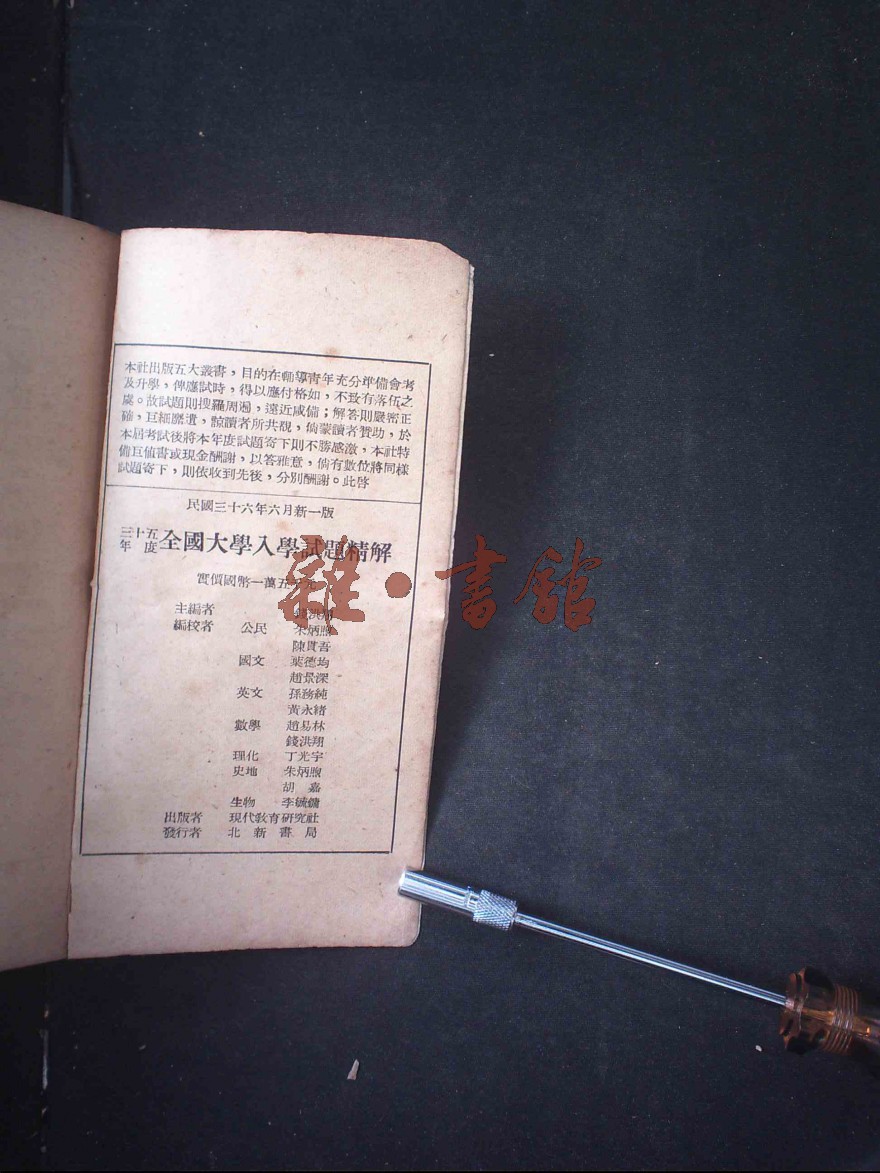 本社出版五大叢書，目的在輔導青年充分準備會考
及升學，俾應試時，得以應付格如，不致有落伍之
處。故試題則搜羅周遍，遠近咸備；解答則嚴密正
確，巨細靡遺，諒讀者所共覩，倘蒙讀者贊助，於
本屆考試後將本年度試題寄下則不勝感激，本社特
備巨值書或現金酬謝，以答雅意，倘有數位將同樣
試題寄下，則依收到先後，分別酬謝。此啓
民國三十六年六月新一版
三十五年度全國大學入學試題精解
實價國幣一萬五千元
主編者 錢洪翔
編校者 公民 朱炳煦
陳貫吾
國文 葉德均
趙景深
英文 孫務純
黃永緒
數學 趙易林
錢洪翔
理化 丁光宇
史地 朱炳煦
胡嘉
生物 李毓鏞
出版者 現代教育研究社
發行者 北新書局
雜·書館